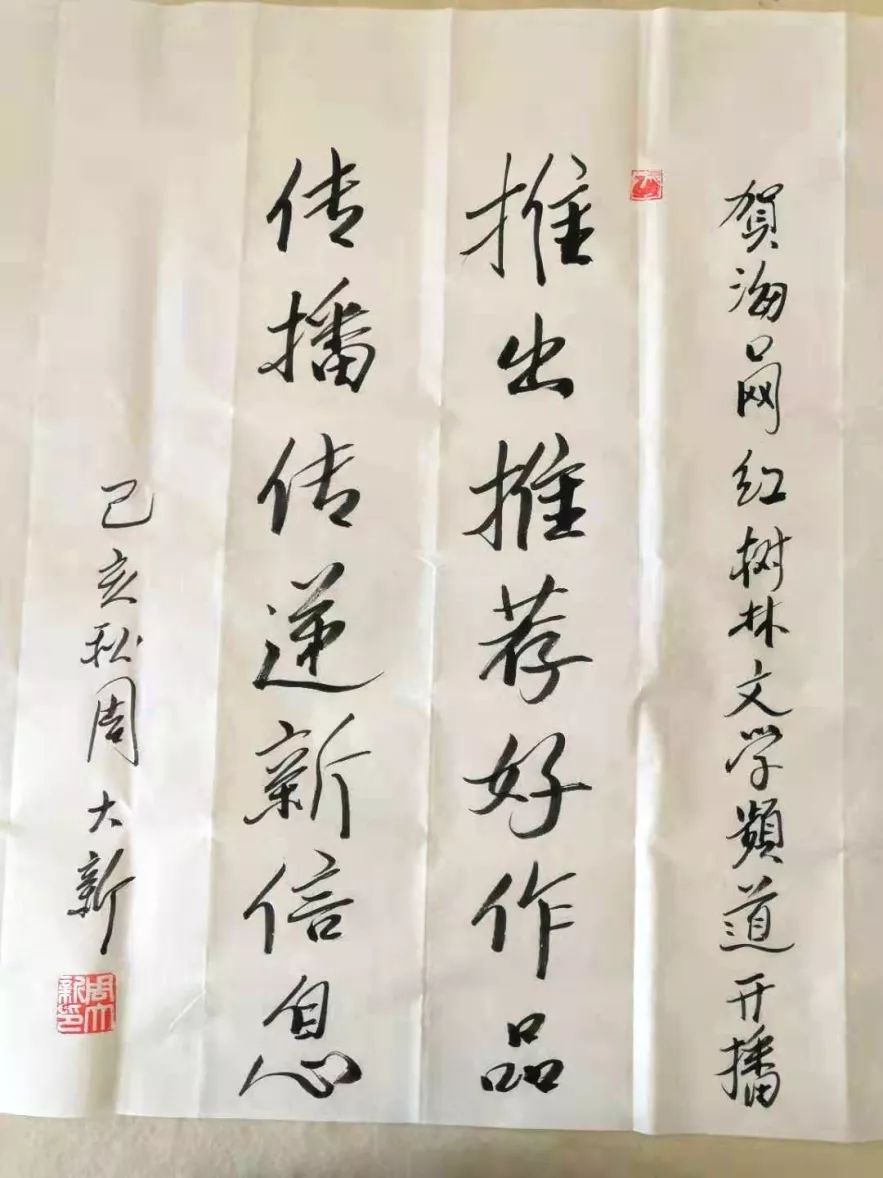 贺海口网红树林文学頻道开播
推出推荐好作品
传播传递新信息
己亥秋周大新
周大新印